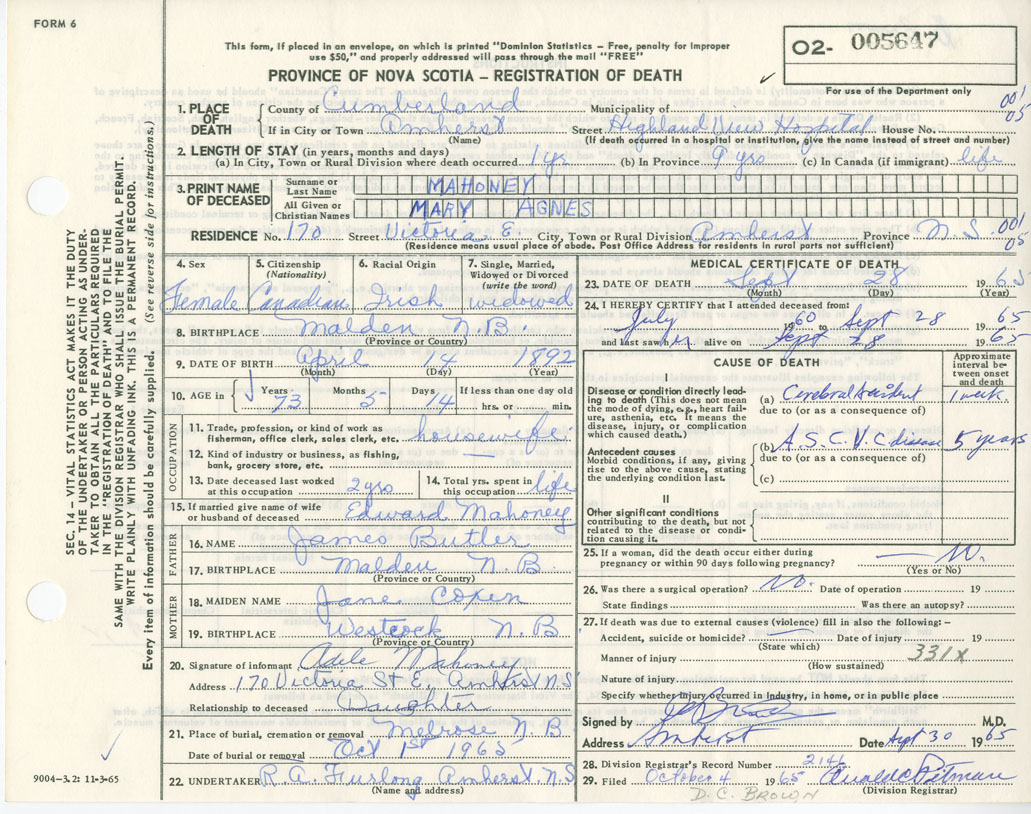 FORM 6
O2- 005647
This form, if placed in an envelope, on which is printed "Dominion Statistics – Free, penalty for improper
use $50," and properly addressed will pass through the mail "FREE"
PROVINCE OF NOVA SCOTIA – REGISTRATION OF DEATH
For use of the Department only
001
05
1. PLACE OF DEATH
County of Cumberland Municipality of
If in City or Town Amherst Street Highland View Hospital House No.
(Name) (If death occurred in a hospital or institution, give the name instead of street and number)
2. LENGTH OF STAY (in years, months and days)
(a) In City, Town or Rural Division where death occurred 1 yr (b) In Province 9 yrs (c) In Canada (if immigrant) life
3. PRINT NAME OF DECEASED
Surname or Last Name MAHONEY
All Given or Christian Names MARY AGNES
RESIDENCE No. 170 Street Victoria E. City, Town or Rural Division Amherst Province N.S. 001
05
(Residence means usual place of abode. Post Office Address for residents in rural parts not sufficient)
4. Sex Female
5. Citizenship (Nationality) Canadian
6. Racial Origin Irish
7. Single, Married, Widowed or Divorced (write the word) widowed
8. BIRTHPLACE Malden N.B.
(Province or Country)
9. DATE OF BIRTH April 14 1892
(Month) (Day) (Year)
10. AGE in Years 73 Months 5 Days 14 If less than one day
hrs. or min.
OCCUPATION
11. Trade, profession, or kind of work as
fisherman, office clerk, sales clerk, etc. housewife
12. Kind of industry or business, as fishing,
bank, grocery store, etc. —
13. Date deceased last worked
at this occupation 2 yrs
14. Total yrs. spent in
this occupation life
15. If married give name of wife
or husband of deceased Edward Mahoney
FATHER
16. NAME James Butler
17. BIRTHPLACE Malden N.B.
(Province or Country)
MOTHER
18. MAIDEN NAME Jane Copen
19. BIRTHPLACE Westcock N.B
(Province or Country)
20. Signature of informant Adele Mahoney
Address 170 Victoria St E. Amherst N.S
Relationship to deceased Daughter
21. Place of burial, cremation or removal Melrose N.B
Date of burial or removal Oct 1st 1965
22. UNDERTAKER R.A. Furlong Amherst. N.S
(Name and address)
MEDICAL CERTIFICATE OF DEATH
23. DATE OF DEATH Sept 28 1965
(Month) (Day) (Year)
24. I HEREBY CERTIFY that I attended deceased from:
July 1960 to Sept 28 1965
and last saw h alive on Sept 28 1965
CAUSE OF DEATH
Approximate interval between onset and death
I
Disease or condition directly leading
to death (This does not mean
the mode of dying, e.g., heart failure,
asthenia, etc. It means the
disease, injury, or complication
which caused death.)
(a) Cerebral Accident 1 week
due to (or as a consequence of)
Antecedent causes
Morbid conditions, if any, giving
rise to the above cause, stating
the underlying condition last.
(b) A.S.C.V.C disease 5 years
due to (or as a consequence of)
(c)
II
Other significant conditions
contributing to the death, but not
related to the disease or condition
causing it.
25. If a woman, did the death occur either during
pregnancy or within 90 days following pregnancy? No.
(Yes or No)
26. Was there a surgical operation? No. Date of operation 19
State findings Was there an autopsy?
27. If death was due to external causes (violence) fill in also the following: –
Accident, suicide or homicide? Date of injury 19
(State which)
Manner of injury 331X
(How sustained)
Nature of injury
Specify whether injury occurred in industry, in home, or in public place
Signed by M.D.
Address Amherst Date Sept 30 1965
28. Division Registrar's Record Number 2146
29. Filed October 4 1965 Pitman
(Division Registrar)
D. C. BROWN
SEC. 14 – VITAL STATISTICS ACT MAKES IT THE DUTY
OF THE UNDERTAKER OR PERSON ACTING AS UNDER-
TAKER TO OBTAIN ALL THE PARTICULARS REQUIRED
IN THE "REGISTRATION OF DEATH" AND TO FILE THE
SAME WITH THE DIVISION REGISTRAR WHO SHALL ISSUE THE BURIAL PERMIT.
WRITE PLAINLY WITH UNFADING INK. THIS IS A PERMANENT RECORD.
Every item of information should be carefully supplied. (See reverse side for instructions.)
9004–3.2: 11–3–65